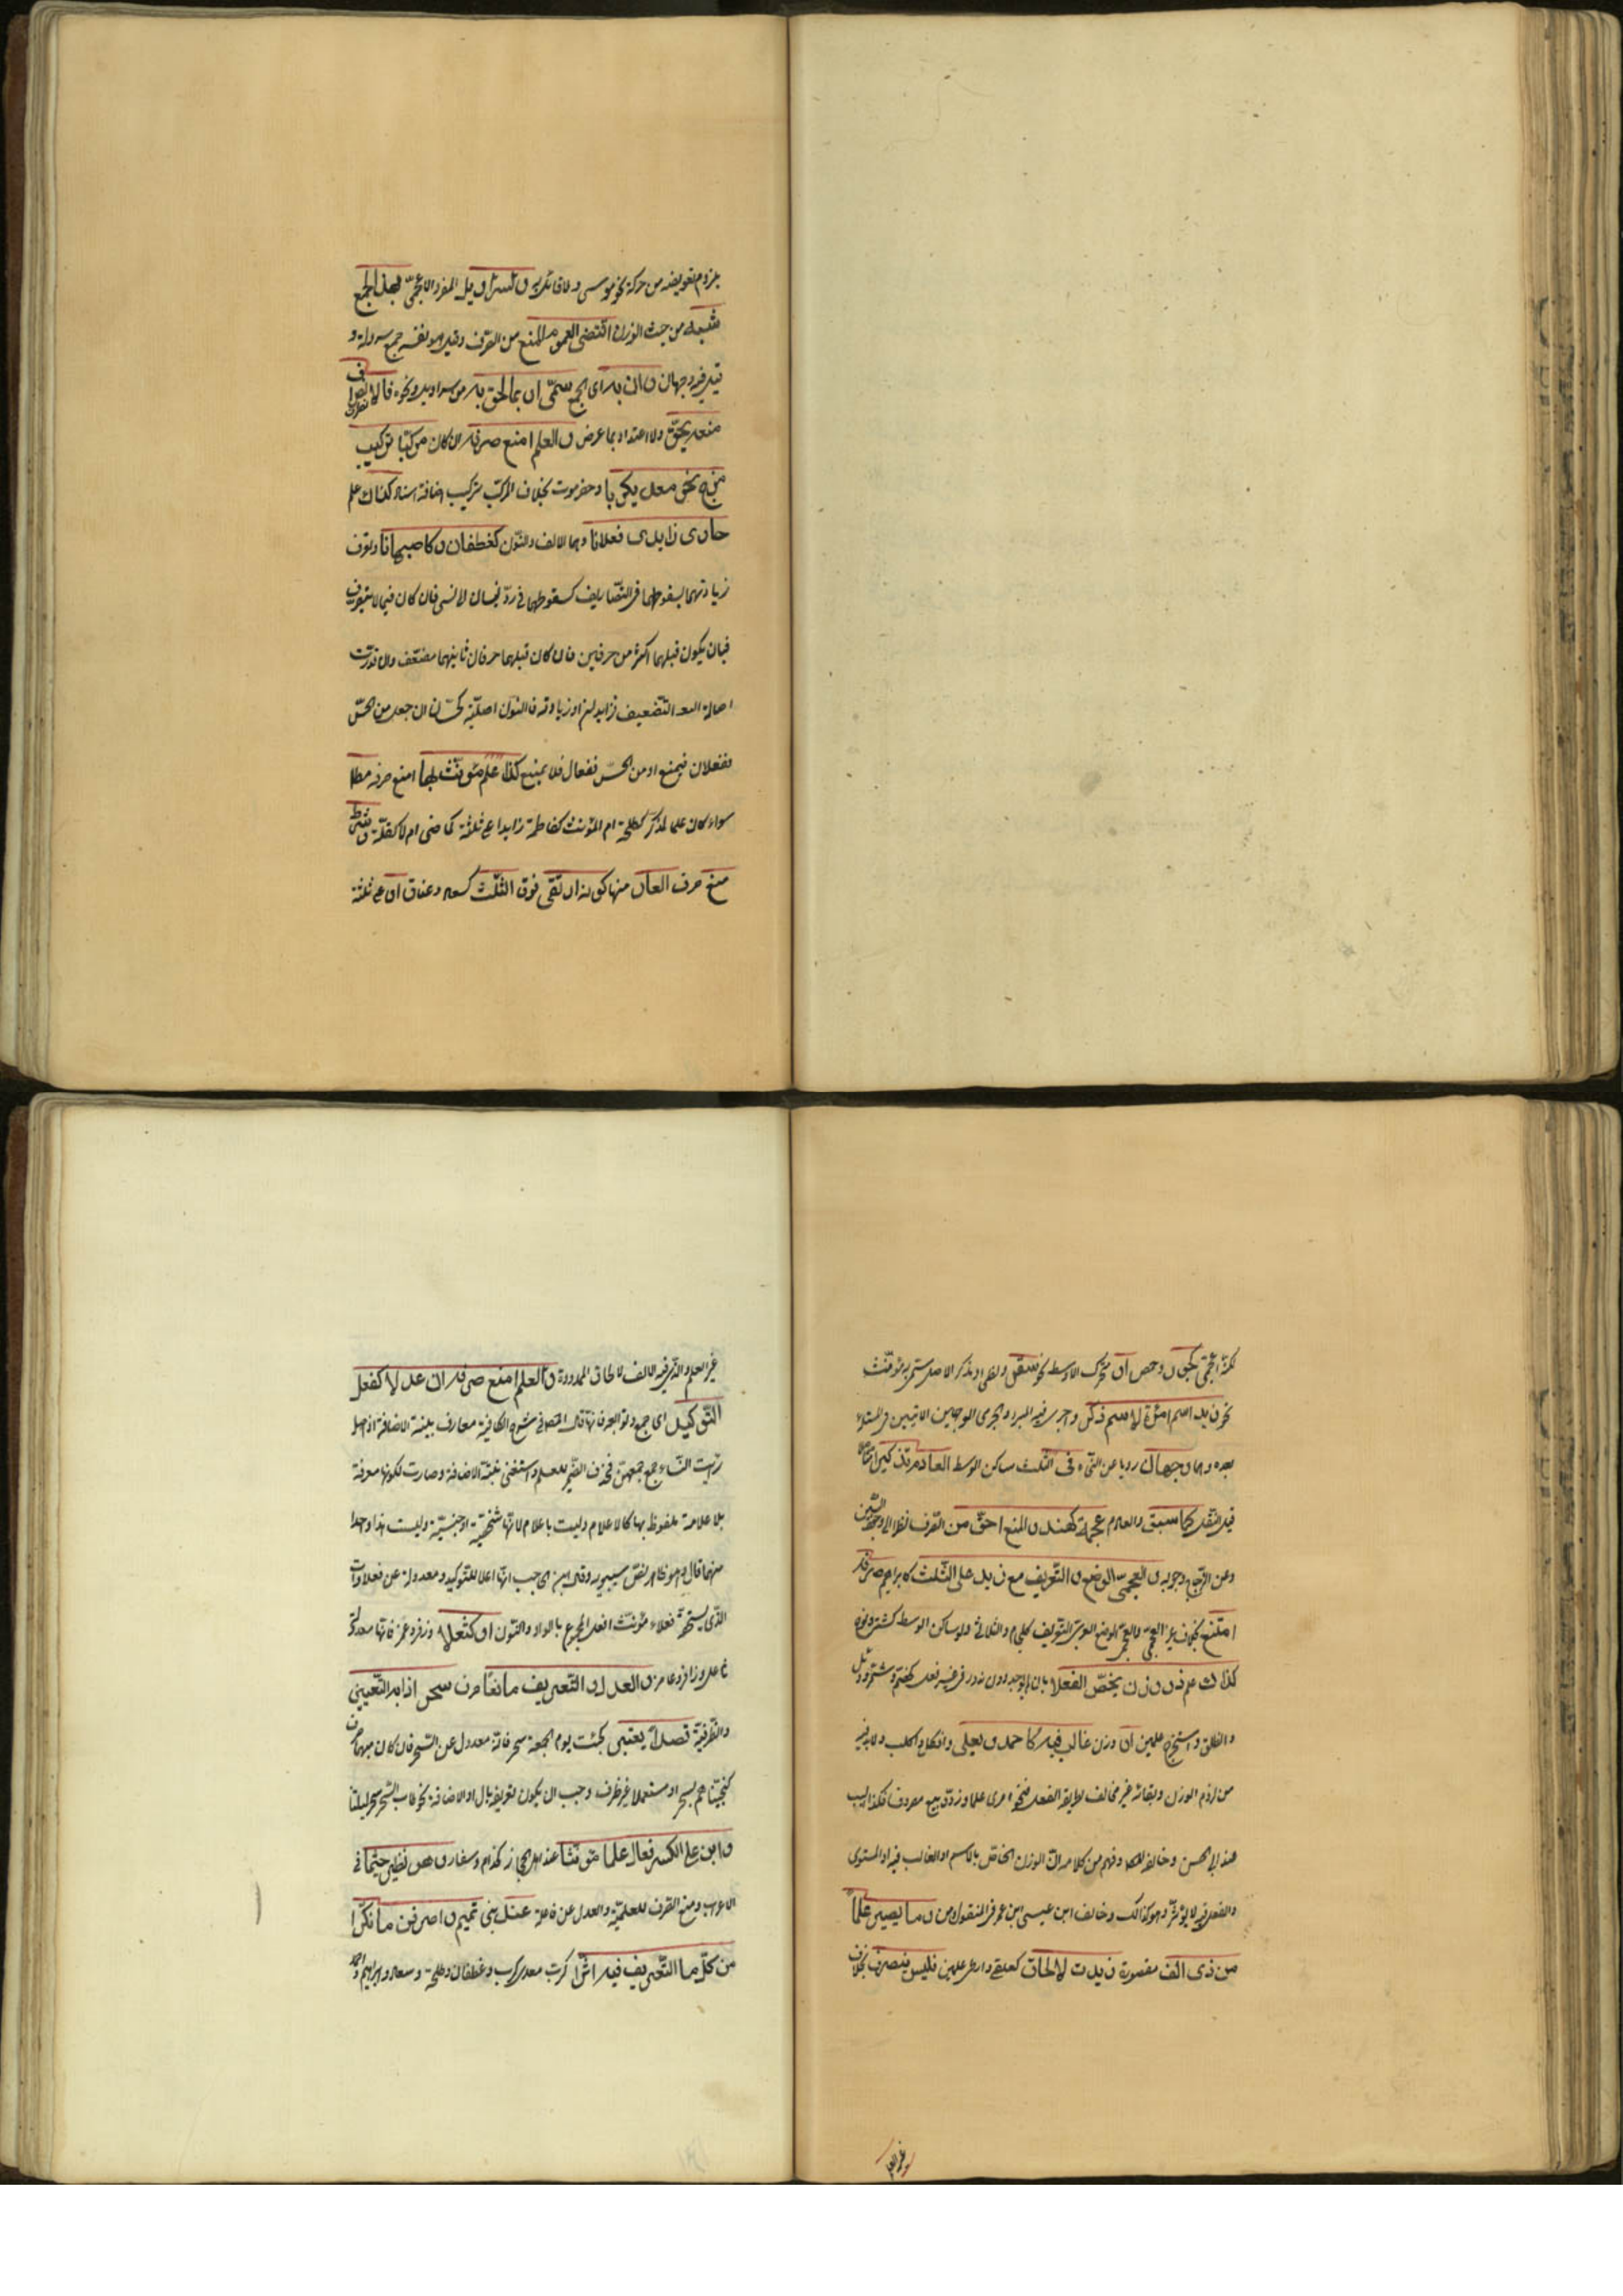 يلزم تعويضه من حركة نحو موسى ولا قائل به و لسراويل المفرد الأعجمي بهذا الجمع
شبه من حيث الوزن اقتضى عموم المنع من الصرف وقيل هو نفسه جمع سروالة و
قيل فيه وجهان و ان به اى الجمع سمّى او بما لحق به من سراويل ونحوه فالانصراف
منعه يحقّ ولا اعتداد بما عرض و العلم امنع صرفه ان كان مركّبا تركيب
مزج نحو معدي كربا وحضرموت بخلاف المركب تركيب اضافة او اسناد كذاك علم
حاوى زايدى فعلانا وهما الالف والنون كغطفان و كاصبهانا وتعرف
زيادتهما بسقوطهما في التصاريف كسقوطهما في ردّ نسيان لا نسى فان كان فيما لا يتصرف
فبان يكون قبلهما اكثر من حرفين فان كان قبلهما حرفان ثانيهما مضعّف فان قدّرت
اصالة التضعيف فزايدان او زيادته فالنون اصليّة كحسّان ان جعل من الحسّ
ففعلان فيمنع او من الحسن ففعال فلا يمنع كذا علم مؤنّث بهاء امنع صرفه مطلقا
سواء كان علما لمذكّر كطلحة ام لمؤنث كفاطمة زايدا على ثلثة كما مضى ام لا كقلّة و شرط
منع صرف العار منها كونه ارتقى فوق الثلث كسعاد وعناق او على ثلثة
لكنّه اعجمىّ كجور وحمص او متحرك الاوسط نحو سقر ولظى او مذكر الاصل سمّى به مؤنّث
نحو زيد اسم امرأة لا اسم ذكر واجرى فيه المبرد والجرمى الوجهين الآتيين في المسئلة
بعده وهما وجهان رويا عن النحاة فى الثلث ساكن الوسط العادم تذكيرا متأصلا
قبل النقل كما سبق والعادم عجمة كهند و المنع احقّ من الصرف نظرا الى وجود السّببين
وعن الزجّاج وجوبه و العجمىّ الوضع و التعريف مع زيد على الثلث كابراهيم صرفه
امتنع بخلاف غير العجمىّ والعجمىّ الوضع العربىّ التعريف كلجام والثلاثى ولو ساكن الوسط كشتر ونوح
كذاك علم ذو وزن يخصّ الفعلا بان لم يوجد دون ندور في غير فعل كخضّم وشمّر ودئل
وانطلق واستخرج علمين او وزن غالب فيه كاحمد و يعلى وافكل واكلب ولا بد فيه
من لزوم الوزن وبقائه غير مخالف لطريقة الفعل فنحو امرئ علما وردّ وبيع مصروف كذا البب
عند ابي الحسن وخالفه المصا وفهم من كلامه انّ الوزن الخاصّ بالاسم او الغالب فيه او المستوى
والفعل فيه لا يؤثّر وهو كذلك وخالف ابن عيسى ابن عمر في المنقول من و ما يصير علما
من ذى الف مقصورة زيدت لالحاق كعلقى وارطى علمين فليس ينصرف بخلاف
غير العلم
غير العلم والذي فيه الالف للالحاق الممدودة و العلم امنع صرفه ان عدلا كفعل
التوكيد اى جمع وتوابعه فانّها قال المص في شرح الكافية معارف بنيّة الاضافة اذ اصل
رأيت النساء جمع جمعهنّ فحذف الضمير للعلم واستغنى بنيّة الاضافة وصارت لكونها معرفة
بلا علامة ملفوظ بها كالاعلام وليست باعلام لانها شخصيّة او جنسيّة وليست هذا واحدا
منهما قال وهو ظاهر نصّ سيبويه وقال ابن الحاجب انها اعلام للتوكيد ومعدولة عن فعلاوات
الذي يستحقّه فعلاء مؤنّث افعل المجموع بالواو والنون او كثعلا وزفر وعمر فانها معدولة
عن ثاعل وزافر وعامر و العدل و التعريف مانعا صرف سحر اذا به التعيين
والظرفيّة قصدا يعتبر كجئت يوم الجمعة سحر فانه معدول عن السّحر فان كان مبهما صرف
كنجيّناهم بسحر او مستعملا غير ظرف وجب ان يكون تعريفه بال او الاضافة نحو طاب السّحر سحر ليلتنا
و ابن على الكسر فعال علما مؤنّثا عند اهل الحجاز كحذام وسفار و هو نظير جشما في
الاعراب ومنع الصرف للعلميّة والعدل عن فاعلة عند بنى تميم و اصرفن ما نكّرا
من كلّ ما التعريف فيه اثّرا كربّ معدى كرب وغطفان وطلحة وسعاد وابراهيم واحمد